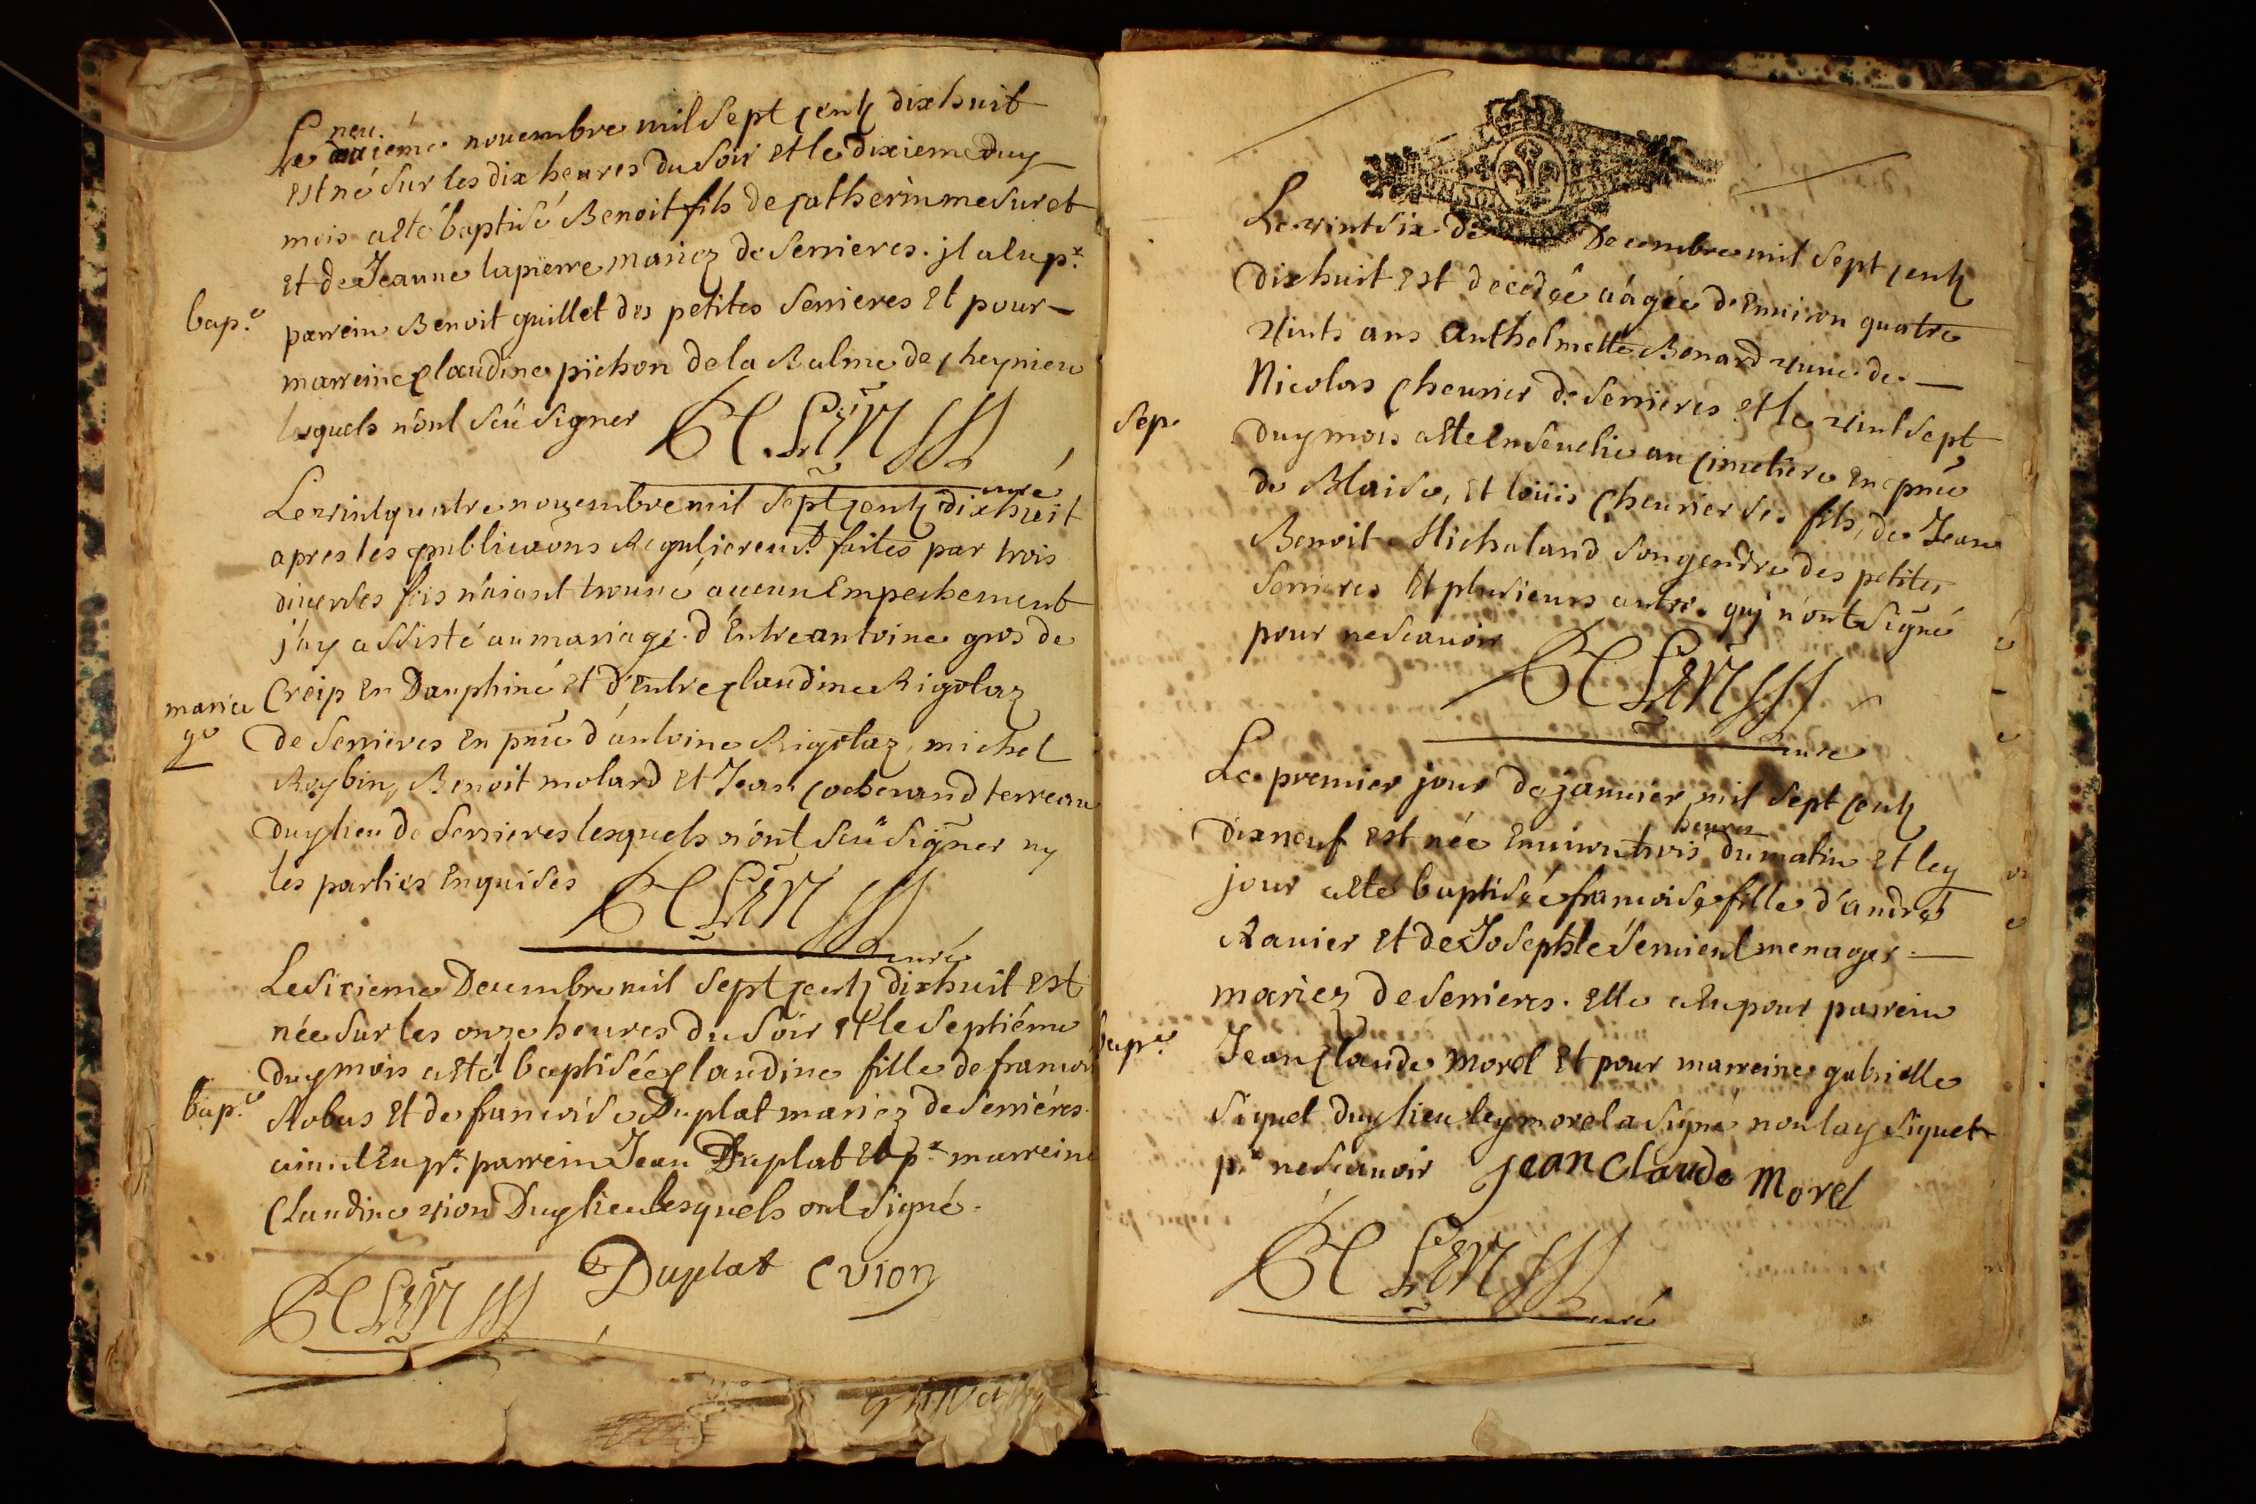 Le neu.ieme nouembre mil sept centz dixhuit
est né sur les dix heures du soir et le dixieme duy
mois a esté baptisé Benoit fils de catherin mesuret
et de Jeanne lapierre mariez de serrieres. jl a eu p.r
bap.e
parrein Benoit guillet des petites serrieres et pour
marreine claudine pichon de la Balme de cheynieu
lesquels n'ont sçeü signer
curé
Le vint quatre nouembre mil sept centz dixhuit
apres les publicaons regulierem.t faites par trois
diuerses fois n'aiant trouué aucun Empechement
j'ay assisté au mariage d'Entre antoine gros de
Creip en Dauphiné et d'entre claudine Rigolaz
maria
ge
de serrieres en pñce d'antoine Rigolaz, michel
Roybin, Benoit molard et Jean cochenand terreau
duy lieu de serrieres lesquels n'ont sceü signer ny
les parties enquises
curé
Le sixieme Decembre mil sept centz dixhuit est
née sur les onze heures du soir et le septiéme
duy mois a esté baptisée claudine fille de francois
bap.e
Robus et de francoise Duplat mariez de serriéres.
aiant eu p.r parrein Jean Duplat et p.r marreine
Claudine vion Duy lieu lesquels ont signé.
Duplat C vion
Le vint six de Decembre mil sept centz
dixhuit est decedée aágée d'Enuiron quatre
vints ans anthelmette Bonard vuue de
Nicolas cheurier de serrieres et le vint sept
sep.
duy mois a esté enseuelie au cimetiere en pñce
de Blaise, et loüis cheurier ses fils, de Jean
Benoit Michaland son gendre des petites
serrieres et plusieurs autre quj n'ont signé
pour ne scauoir
curé
Le premier jour de januier mil sept centz
dixneuf est née enuiron trois heures du matin et ley
jour a esté baptisée francoise fille d'andré
Rauier et de Josephte seruient menager
mariez de serrieres. elle a eu pour parrein
bap.e
Jean claude Morel et pour marreine gabrielle
siquet duy lieu ley morel a signé, non lay siquet
p.r ne scauoir Jean Claude Morel
curé